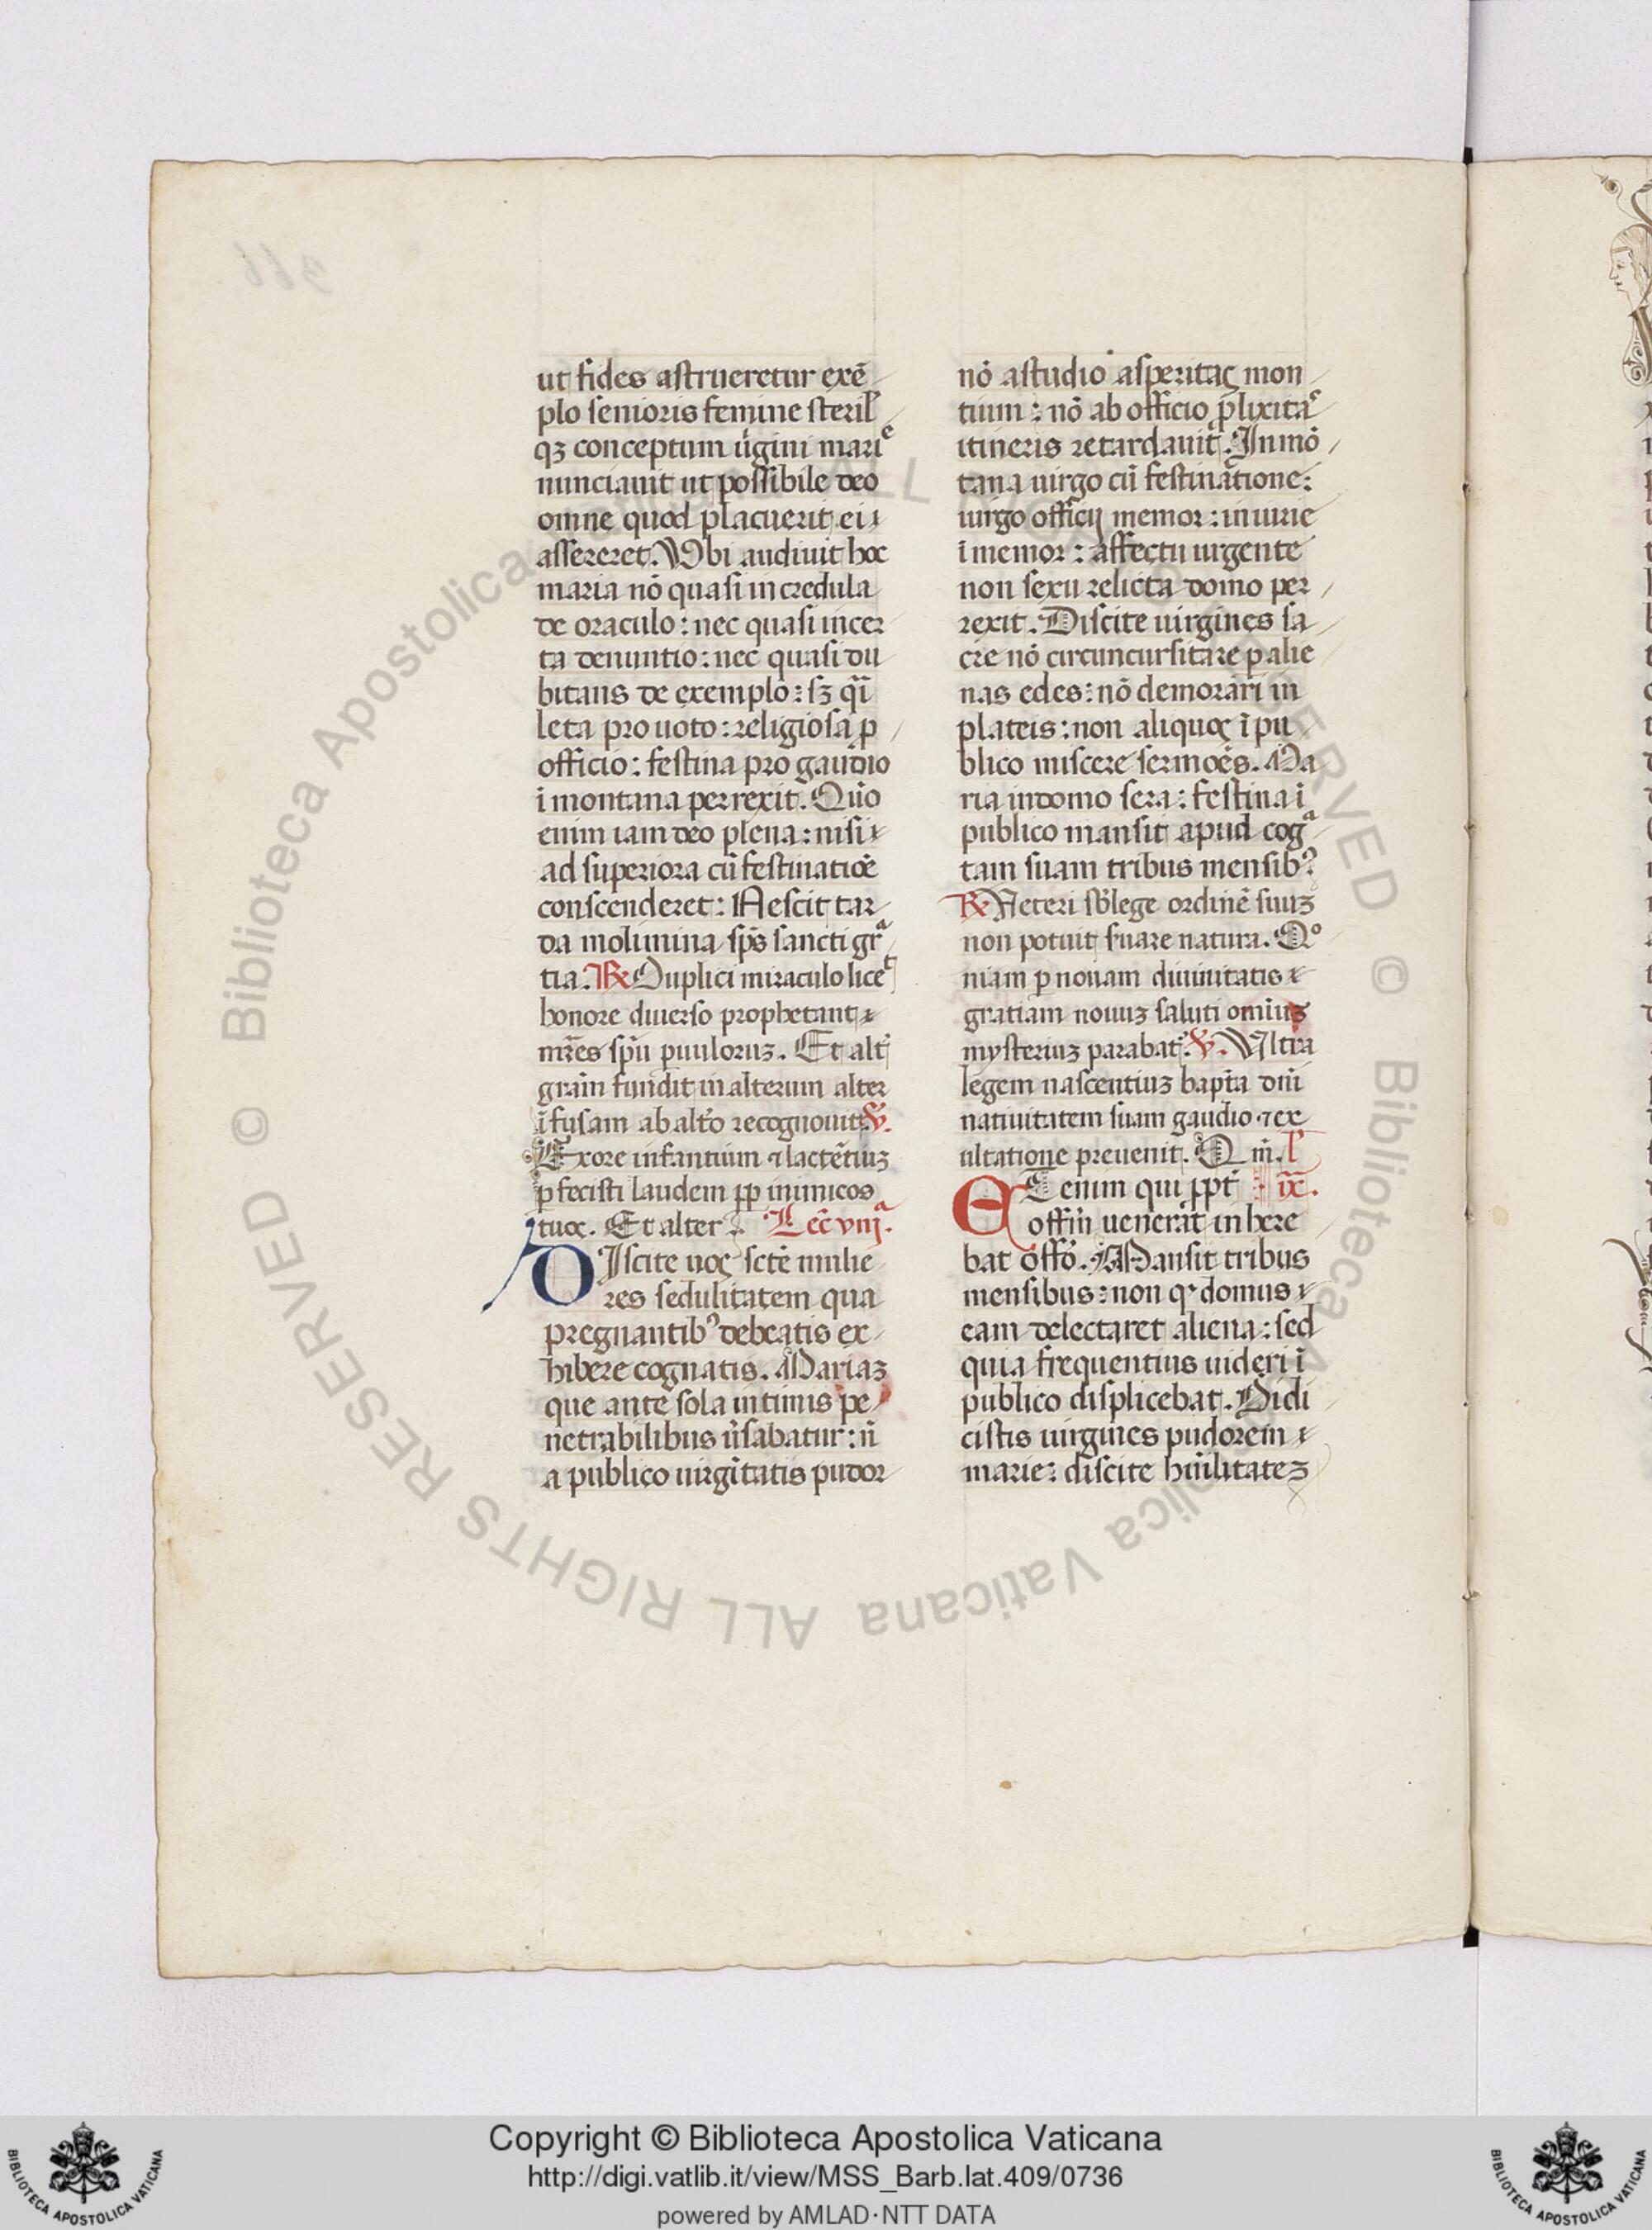 ut fides astrueretur exē
plo senioris femine steril'
qꝫ conceptum ūgini marie
nunciauit ut possibile deo
omne quod placuerit ei
assereret. Vbi audiuit hoc
maria nō quasi incredula
de oraculo: nec quasi incer
ta denuntio: nec quasi du
bitans de exemplo: sꝫ qͣi
leta pro uoto: religiosa ꝓ
officio: festina pro gaudio
ī montana perrexit. Quo
enim iam deo plena: nisi
ad superiora cū festinatiōe
conscenderet: Nescit tar
da molimina sp̄s sancti grͣ
tia. ℟ Duplici miraculo licet
honore diuerso prophetant
mr̄es sp̄u puuloruꝫ. Et alt̓
gram̄ fundit in alterum alter
īfusam ab alt̓o recognouit ℣.
Exore infantium ⁊ lactētiuꝫ
ꝑfecisti laudem ꝓp inimicos
tuos. Et alter. Lec̄ viijͣ.
DIscite uos scē mulie
res sedulitatem qua
pregnantibꝰ debeatis ex
hibere cognatis. Mariaꝫ
que ante sola intimis pe
netrabilibus ūsabatur: n̄
a publico uirgītatis pudor
nō a studio asperitas mon
tium: nō ab officio ꝓlixitas
itineris retardauit. In mō
tana uirgo cū festinatione:
uirgo officij memor: iniurie
īmemor: affectu urgente
non sexu relicta domo per
rexit. Discite uirgines sa
cre nō circuncursitare ꝑ alie
nas edes: nō demorari in
plateis: non aliquos ī pu
blico miscere sermoēs. Ma
ria in domo sera: festina ī
publico mansit apud cogͣ
tam suam tribus mensibꝰ
℟ Veteri sb̓ lege ordinē suuꝫ
non potuit suare natura. Qͦ
niam ꝑ nouam diuinitatis
gratiam nouuꝫ saluti om̄iuꝫ
mysteriuꝫ parabat̓. ℣. Vltra
legem nascentiuꝫ bapt̄a dn̄i
natiuitatem suam gaudio ⁊ ex
ultatione preuenit. Qm̄. l'
ETenim qui ꝓpt̓ ix.
offm̄ uenerat inhere
bat offō. Mansit tribus
mensibus: non qͥ domus
eam delectaret aliena: sed
quia frequentius uideri ī
publico displicebat. Didi
cistis uirgines pudorem
marie: discite hūilitateꝫ
Copyright © Biblioteca Apostolica Vaticana
http://digi.vatlib.it/view/MSS_Barb.lat.409/0736
powered by AMLAD·NTT DATA